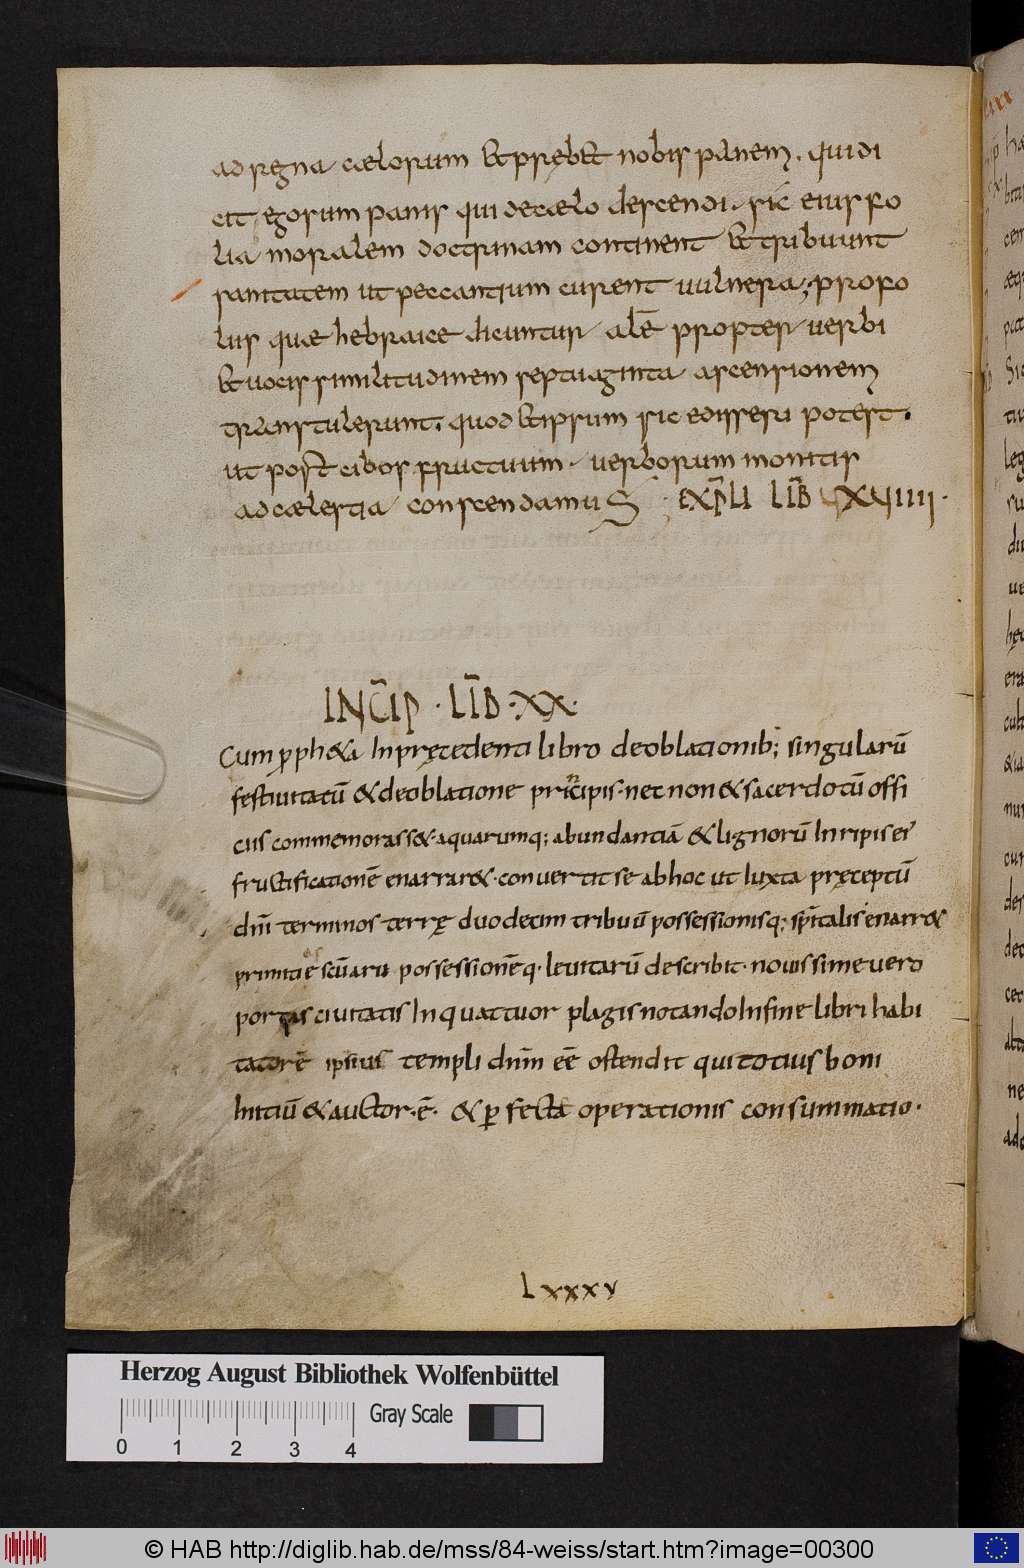 ad regna cælorum & pręb& nobis panem. qui di
cit ego sum panis qui de cælo descendi. sic eius fo
lia moralem doctrinam continent & tribuunt
sanitatem ut peccantium curent vulnera; pro fo
liis quæ hebraice dicuntur alē propter verbi
& vocis similitudinem septuaginta ascensionem
transtulerunt. quod & ipsum sic edisseri potest.
ut post cibos fructuum. verborum monitis
ad cælestia conscendamuS. EXPLI LIB XVIIII.
INCIP. LIB. XX.
Cum ꝓph&a In pręcedenti libro de oblationib; singularū
festivitatū & de oblatione principis. nec non & sacerdotū offi
ciis commemorass&. aquarumq; abundantiā & lignorū In ripis ei
fructificationē enarrar&. convertit se ab hoc ut Iuxta pręceptū
dnī terminos terrę duodecim tribuū possessionisq; spītalis enarr&
primitię scūarū possessionēq. levitarū describit. novissime vero
portas civitatis In quattuor plagis notando In fine libri habi
tatorē ipsius templi dnm̄ eē ostendit qui totius boni
Initiū & auctor. ē. & ꝑfecta operationis consummatio.
Lxxxv
Herzog August Bibliothek Wolfenbüttel
Gray Scale
0 1 2 3 4
© HAB http://diglib.hab.de/mss/84-weiss/start.htm?image=00300